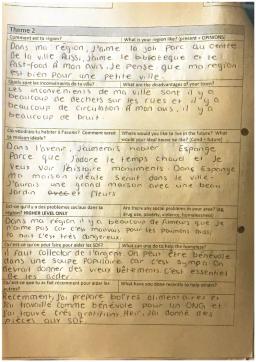 Theme 2
Comment est ta région? What is your region like? (present + OPINIONS)
Dans ma région, j'aime la joli parc au centre
de la ville. Aussi, j'aime le biblioteque et le
fast-food. À mon avis, Je pense que ma region
est bien pour une petite ville.
Quels sont les inconvénients de ta ville? What are the disadvantages of your town?
Les inconvenients de ma ville sont il y a
beaucoup de dechets sur les rues et il y a
beaucoup de circulation. À mon avis, il y a
beaucoup de bruit.
Où voudrais-tu habiter à l'avenir? Comment serait ta maison idéale? Where would you like to live in the future? What would your ideal house be like? (Cond + future)
Dans l'avenir, J'aimerais habiter Espagne
Parce que J'adore le temps chaud et Je
veux voir l'histoire monuments. Dans Espagne
Ma maison idéale serait dans le ville.
J'aurais une grand maison avec une beau
Jardin avec fleurs
Est-ce qu'il y a des problèmes sociaux dans ta région? HIGHER LEVEL ONLY Are there any social problems in your area? (eg. drug use, poverty, violence, homelessness)
Dans ma region il y a beaucoup de fumeurs que je
n'aime pas car c'est mauvais pour les poumons mais
la nuit c'est très dangereux.
Qu'est-ce qu'on peut faire pour aider les SDF? What can one do to help the homeless?
Il faut collecter de l'argent. On peut être bénévole
dans une soupe populaire car c'est sympa. On
devrait donner des vieux bêtements. C'est essentiel
de les aider.
Qu'est-ce que tu as fait récemment pour aider les autres? What have you done recently to help others?
Recemment, j'ai préparé boîtes alimentaires et
J'ai travaillé comme bénévole pour un ONG et
J'ai trouvé très gratifiant. Hier, j'ai donné des
pièces aux SDF.